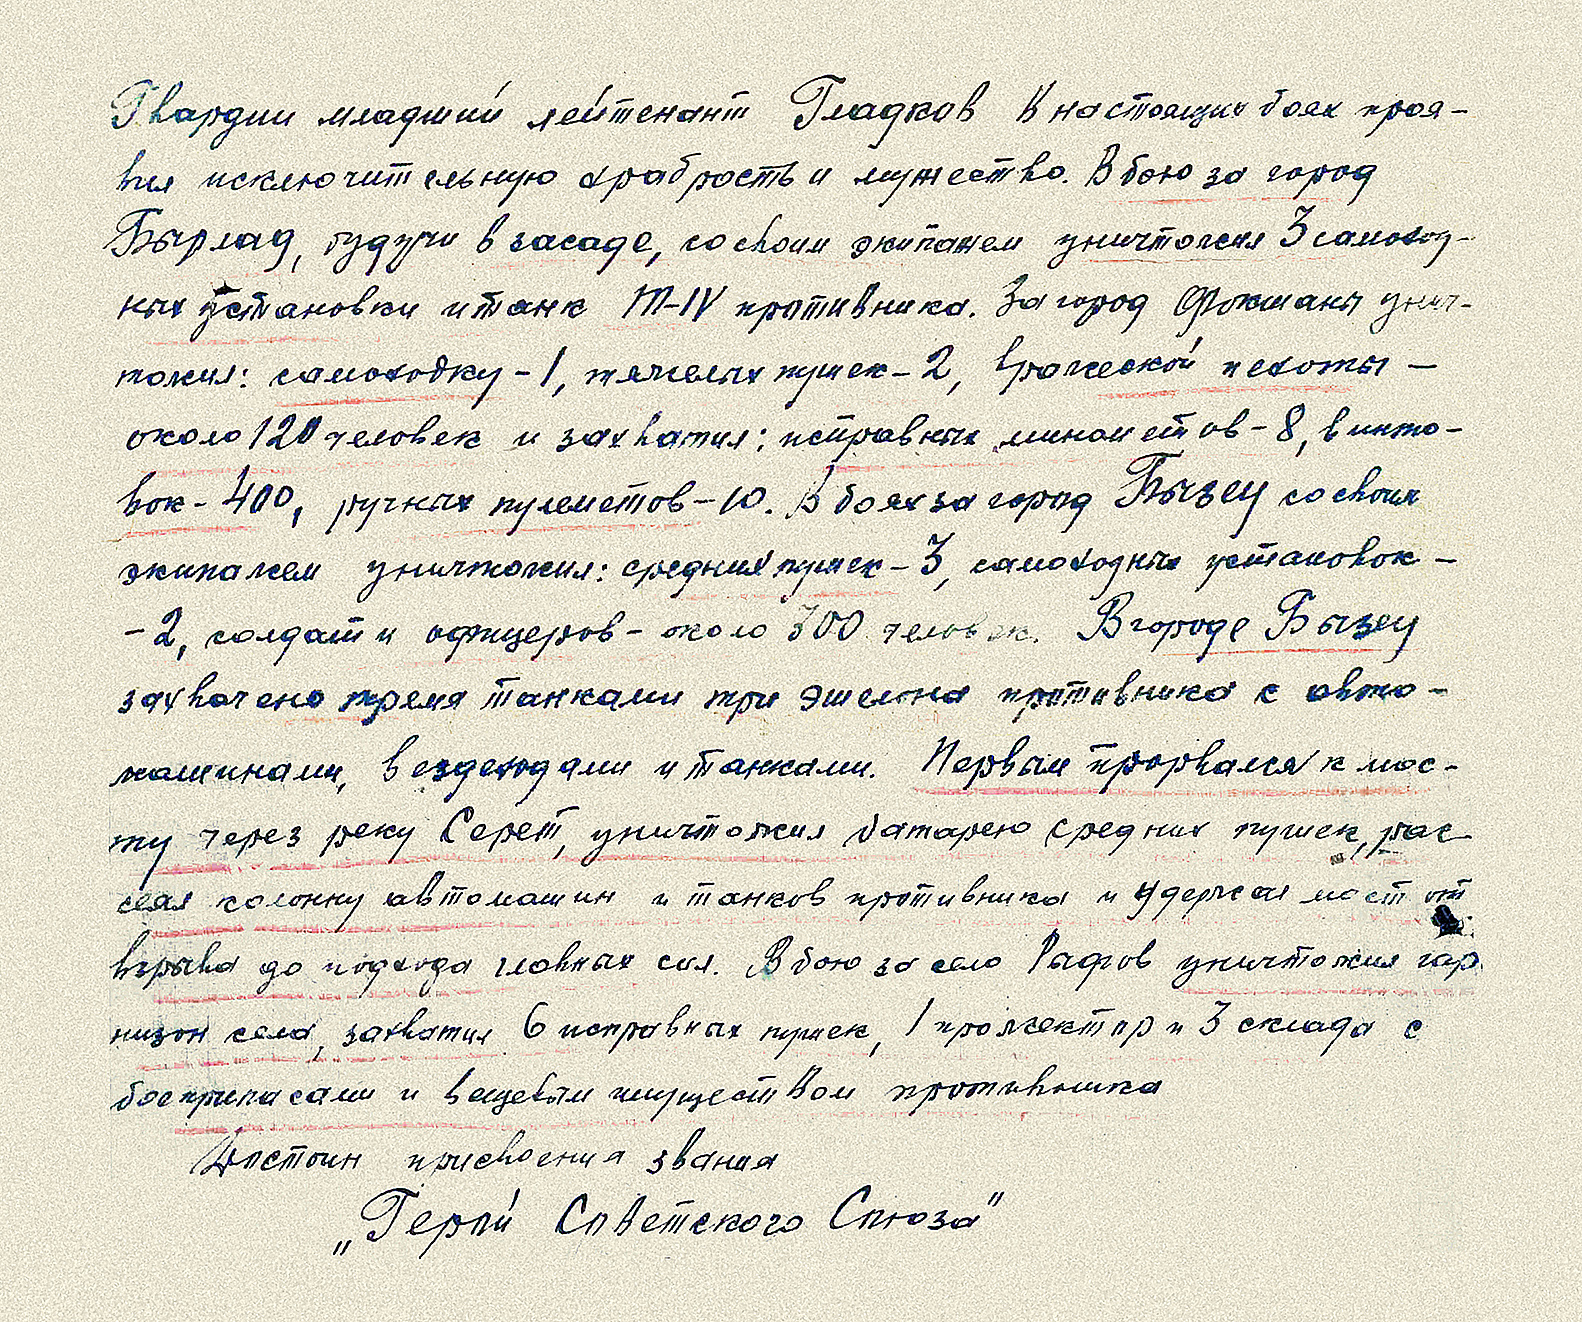 Гвардии младший лейтенант Гладков в настоящих боях проя-
вил исключительную храбрость и мужество. В бою за город
Бырлад, будучи в засаде, со своим экипажем уничтожил 3 самоход-
ных установки и танк Т-IV противника. За город Фокшаны унич-
тожил: самоходку-1, тяжелых пушек-2, вражеской пехоты -
около 120 человек и захватил: исправных минометов-8, винто-
вок-400, ручных пулеметов-10. В боях за город Бызеу со своим
экипажем уничтожил: средних пушек-3, самоходных установок-
-2, солдат и офицеров-около 300 человек. В городе Бызеу
захвачено тремя танками три эшелона противника с авто-
машинами, вездеходами и танками. Первым прорвался к мос-
ту через реку Серет, уничтожил батарею средних пушек, рас-
сеял колонну автомашин и танков противника и удержал мост от
взрыва до подхода главных сил. В бою за село Рафов уничтожил гар-
низон села, захватил 6 исправных пушек, 1 прожектор и 3 склада с
боеприпасами и вещевым имуществом противника
Достоин присвоения звания
„Герой Советского Союза"